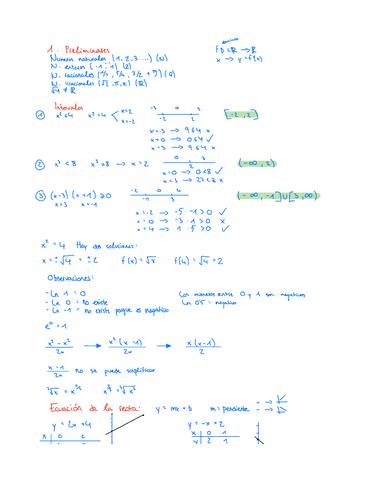 1. Preliminares
Números naturales (1, 2, 3 ...) (N)
N. enteros (-1, 1) (Z)
N. racionales (Q)
N. irracionales (I)
dominio
f: D ⊂ R → R
x → y = f(x)
Intervalos
① x² ≤ 4 x² = 4 x = 2
x = -2
-3 0 3
-2 2
[-2, 2]
x = -3 → 9 ≤ 4 x
x = 0 → 0 ≤ 4 ✓
x = 3 → 9 ≤ 4 x
② x³ < 8 x³ = 8 → x = 2
0 3
2
(-∞, 2)
x = 0 → 0 < 8 ✓
x = 3 → 27 < 8 x
③ (x-3) (x+1) ≥ 0
x = 3 x = -1
-2 0 4
-1 3
(-∞, -1] U [3, ∞)
x = -2 → -5 · -1 > 0 ✓
x = 0 → -3 · 1 > 0 x
x = 4 → 1 · 5 > 0 ✓
x² = 4 Hay dos soluciones:
x = ±√4 = ±2 f(x) = √x f(4) = √4 = 2
Observaciones:
- Ln 1 = 0
- Ln 0 = No existe
- Ln -1 = no existe porque es negativo
Los números entre 0 y 1 son negativos
Ln 0'5 = negativo
e⁰ = 1
x³ - x² / 2x → x² (x - 1) / 2x → x (x - 1) / 2
x - 1 / 2x no se puede simplificar
Ecuación de la recta: y = mx + b m = pendiente + →
- →
y = 2x + 4
x 0
y = -x + 2
x 0 1
y 2 1